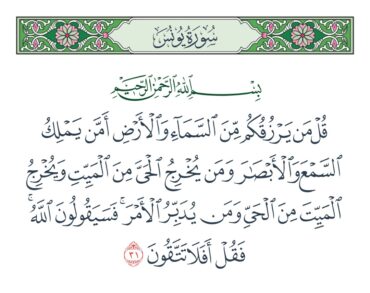 سُورَةُ يُونُسَ
بِسْمِ اللَّهِ الرَّحْمَٰنِ الرَّحِيمِ
قُلْ مَن يَرْزُقُكُم مِّنَ السَّمَاءِ وَالْأَرْضِ أَمَّن يَمْلِكُ
السَّمْعَ وَالْأَبْصَارَ وَمَن يُخْرِجُ الْحَيَّ مِنَ الْمَيِّتِ وَيُخْرِجُ
الْمَيِّتَ مِنَ الْحَيِّ وَمَن يُدَبِّرُ الْأَمْرَ ۚ فَسَيَقُولُونَ اللَّهُ ۚ
فَقُلْ أَفَلَا تَتَّقُونَ ٣١